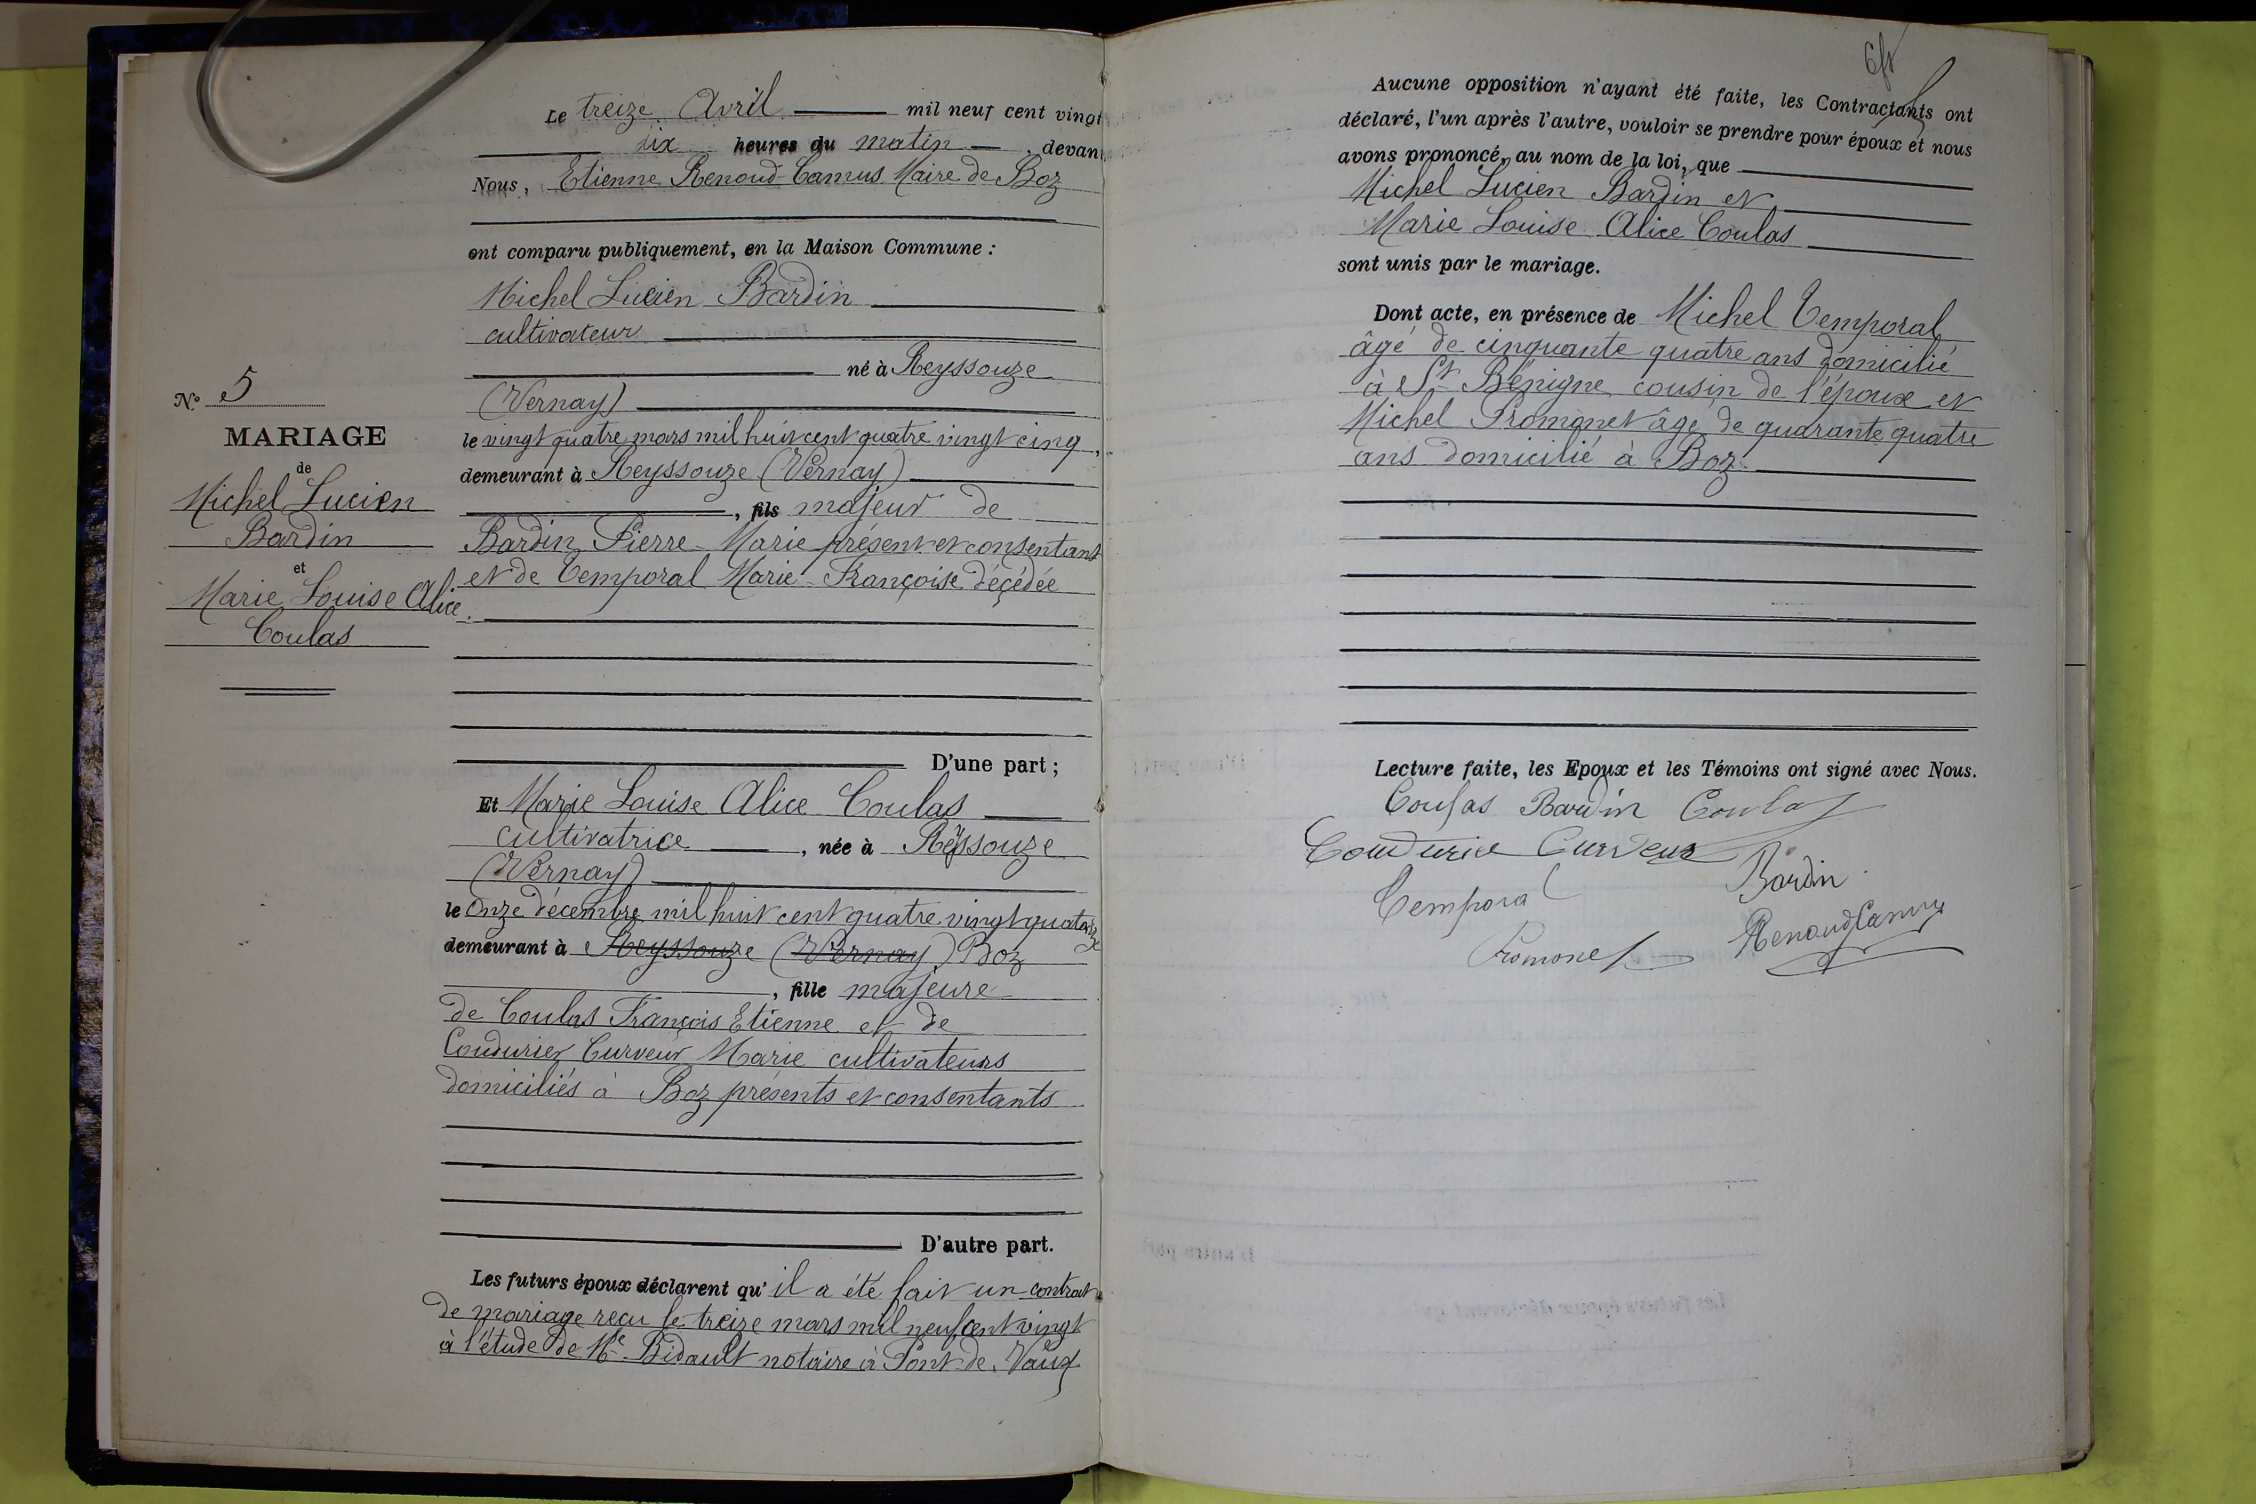 Le treize Avril mil neuf cent vingt
dix heures du matin, devant
Nous, Etienne Renoud-Camus Maire de Boz
ont comparu publiquement, en la Maison Commune :
Michel Lucien Bardin
cultivateur
né à Reyssouze
(Vernay)
le vingt quatre mars mil huit cent quatre vingt cinq,
demeurant à Reyssouze (Vernay)
, fils majeur de
Bardin Pierre-Marie présent et consentant
et de Temporal Marie-Françoise décédée
D'une part ;
Nº 5
MARIAGE
de
Michel Lucien
Bardin
et
Marie Louise Alice
Coulas
Et Marie Louise Alice Coulas
cultivatrice, née à Reyssouze
(Vernay)
le onze décembre mil huit cent quatre vingt quatorze
demeurant à Reyssouze (Vernay) Boz
, fille majeure
de Coulas François Etienne et de
Coudurier Curveur Marie cultivateurs
domiciliés à Boz présents et consentants
D'autre part.
Les futurs époux déclarent qu'il a été fait un contrat
de mariage reçu le treize mars mil neuf cent vingt
à l'étude de Me Bidault notaire à Pont-de-Vaux
Aucune opposition n'ayant été faite, les Contractants ont
déclaré, l'un après l'autre, vouloir se prendre pour époux et nous
avons prononcé, au nom de la loi, que
Michel Lucien Bardin et
Marie Louise Alice Coulas
sont unis par le mariage.
Dont acte, en présence de Michel Temporal
âgé de cinquante quatre ans domicilié
à St Bénigne cousin de l'époux et
Michel Promonet âgé de quarante quatre
ans domicilié à Boz.
Lecture faite, les Epoux et les Témoins ont signé avec Nous.
Coulas Bardin Coulas
Coudurier Curveur
Bardin
Temporal
RenoudCamus
Promonet